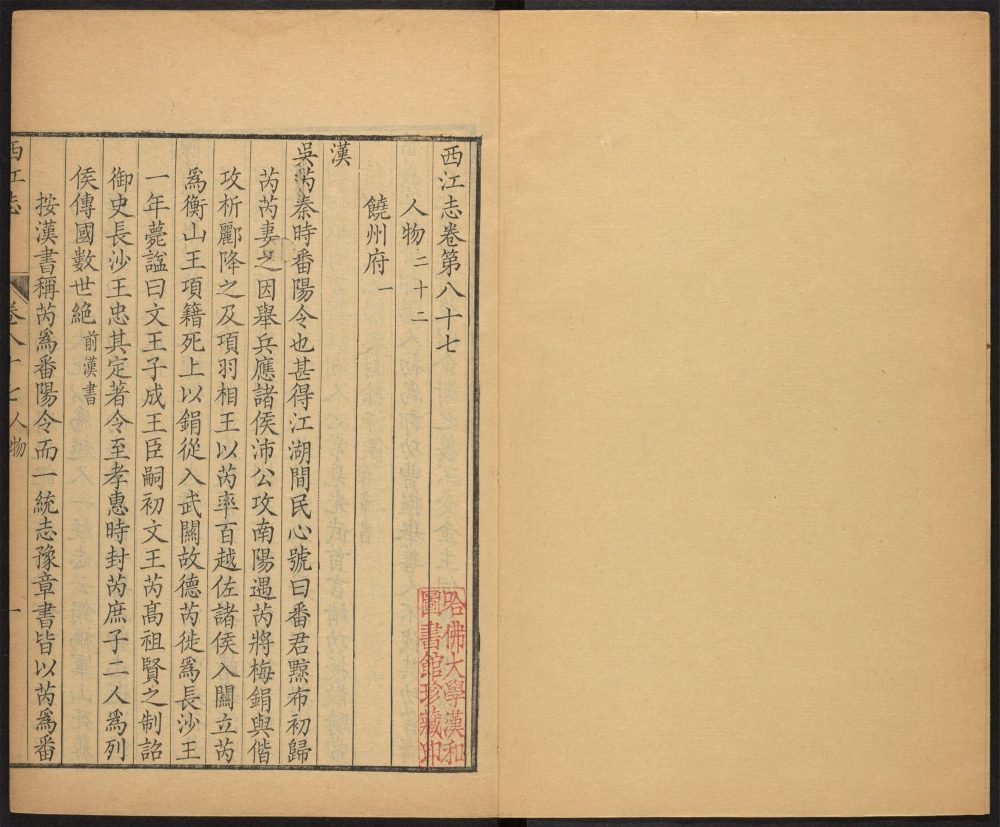 西江志卷第八十七
人物二十二
饒州府一
漢
吳芮秦時番陽令也甚得江湖間民心號曰番君黥布初歸
芮芮妻之因舉兵應諸侯沛公攻南陽遇芮將梅鋗與偕
攻析酈降之及項羽相王以芮率百越佐諸侯入關立芮
為衡山王項籍死上以鋗從入武關故德芮徙為長沙王
一年薨諡曰文王子成王臣嗣初文王芮高祖賢之制詔
御史長沙王忠其定著令至孝惠時封芮庶子二人為列
侯傳國數世絕前漢書
按漢書稱芮為番陽令而一統志豫章書皆以芮為番
西江志
卷八十七人物
一
哈佛大學漢和
圖書館珍藏印